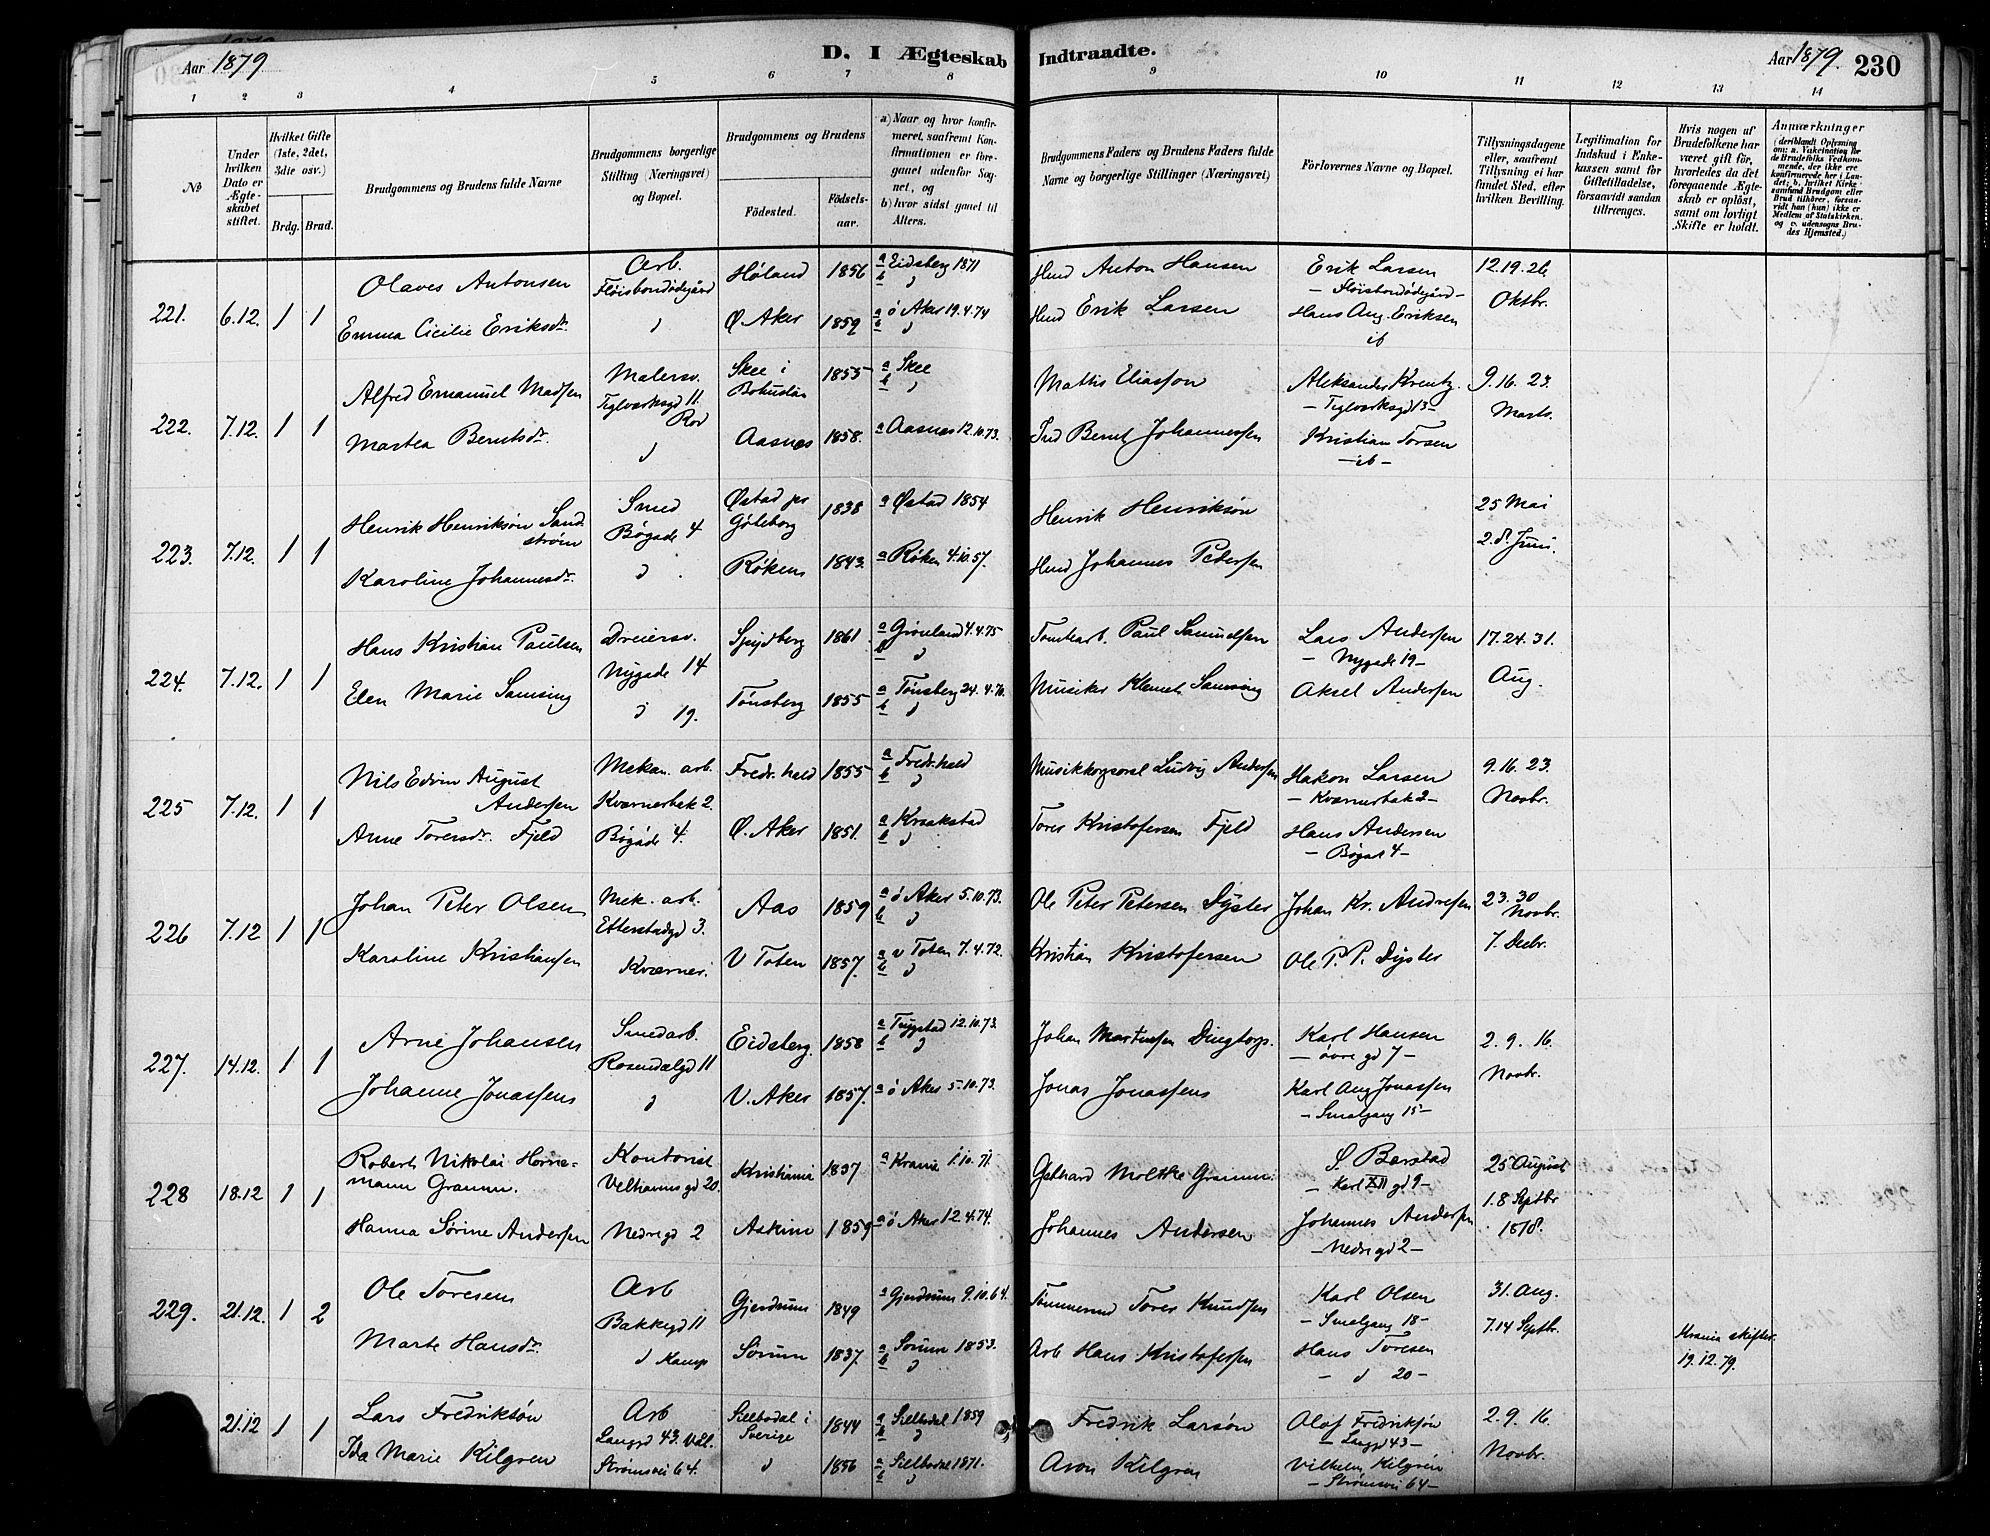 Aar 1879
D. I Ægteskab Indtraadte.
Aar 1879. 230
1 2 3 4 5 6 7 8 9 10 11 12 13 14
No
Under hvilken Dato er Ægteskabet stiftet.
Hvilket Gifte (1ste, 2det, 3die osv.)
Brdg. Brud.
Brudgommens og Brudens fulde Navne
Brudgommens borgerlige Stilling (Næringsvei) og Bopæl.
Brudgommens og Brudens
Födested.
Födsels-aar.
a) Naar og hvor konfirmeret, saafremt Konfirmationen er foregaaet udenfor Sognet, og
b) hvor sidst gaaet til Alters.
Brudgommens Faders og Brudens Faders fulde Navne og borgerlige Stillinger (Næringsvei)
Forlovernes Navne og Bopæl.
Tillysningsdagene eller, saafremt Tillysning ei har fundet Sted, efter hvilken Bevilling.
Legitimation for Indskud i Enkekassen samt for Giftetilladelse, forsaavidt saadan tiltrænges.
Hvis nogen af Brudefolkene har været gift för, hvorledes da det foregaaende Ægteskab er oplöst, samt om lovligt Skifte er holdt.
Anmærkninger (deriblandt Oplysning om: a. Vakcination for de Brudefolks Vedkommende, der ikke ere konfirmerede her i Landet; b. hvilket Kirkesamfund Brudgom eller Brud tilhører, forsaavidt han (hun) ikke er Medlem af Statskirken, og c. udensogns Brudes Hjemsted.)
221. 6.12. 1 1
Olaves Antonsen
Arb. Fløisbondødegård
Høland 1856
a Eidsberg 1871
b
Anton Hansen
Erik Larsen
— Fløisbondødegård —
12.19.26
Oktbr.
Emma Cicilie Eriksdr.
Ø. Aker 1859
a ø Aker 19.4.74
b
Erik Larsen
Hans Aug. Eriksen
ib
222. 7.12. 1 1
Alfred Emanuel Madsen
Malersv.
Teglverksgd 11.
Skee i Bohuslän 1855
a Skee
b
Mathis Eliasson
Aleksander Krentz
— Teglverksgd 13 —
9.16.23.
Marts.
Martea Berntsdr.
Aasnes 1858.
a Aasnes 12.10.73.
Bernt Johannessen
Kristian Torsen
— ib —
223. 7.12. 1 1
Henrik Henriksön Sandström
Smed
Bøgade 4
Østad pr Göteborg 1838
a Østad 1854
Henrik Henriksön
25 Mai
2.8. Juni.
Karoline Johannesdr.
Røken 1843.
a Røken 4.10.57.
Johannes Pedersen
224. 7.12. 1 1
Hans Kristian Paulsen
Dreiersv.
Nygade 14
Spydberg 1861
a Grønland 4.4.75
b
Tomtearb. Paul Samuelsen
Lars Andersen
— Nygade 19 —
17.24.31.
Aug.
Elen Marie Samsing
19.
Tønsberg 1855
a Tønsberg 24.4.70.
b
Musiker Klemet Samsing
Aksel Andersen
225 7.12. 1 1
Nils Edvin August Andersen
Mekan. arb.
Kværnerbak 2.
Fredr.hald 1855
a Fredr.hald
b
Musikkorporal Ludvig Andersen
Hakon Larsen
— Kværnerbak 2 —
9.16.23.
Novbr.
Anne Toresdr. Fjeld
Bøgade 4.
Ø. Aker 1851.
a Kraakstad
b
Tores Kristofersen Fjeld
Hans Andersen
— Bøgad 4 —
226 7.12 1 1
Johan Peter Olsen
Mek. arb.
Etterstadgd 3.
Aas 1859
a ø Aker 5.10.73.
b
Ole Peter Petersen Dyster
Johan Kr. Andresen
23.30 Novbr.
7. Decbr.
Karoline Kristiansen
Kværner.
V Toten 1857.
a v Toten 7.4.72.
b
Kristian Kristofersen
Ole P. P. Dyster
227. 14.12. 1 1
Arne Johansen
Smedarb.
Rosendalgd 11
Eidsberg. 1858
a Trygstad 12.10.73.
b
Johan Martinsen Dingtorp.
Karl Hansen
— øvre gd 7 —
2.9.16.
Novbr.
Johanne Jonassen
V. Aker 1857.
a ø Aker 5.10.73.
Jonas Jonassen
Karl Aug Jonassen
— Smalgang 15 —
228 18.12 1 1
Robert Nikolai Hornemann Gramm.
Kontorist
Velhavensgd 20.
Kristiania 1837
a Krania 1.10.71.
Gebhard Moltke Gramm.
S. Barstad
— Karl XII gd 9 —
25 August
1.8 Septbr
1878.
Hanna Sørine Andersen
Nedregd 2
Askim 1859
a ø Aker 12.4.74.
Johannes Andersen
Johannes Andersen
— Nedregd 2 —
229. 21.12. 1 2
Ole Toresen
Arb
Bakkegd 11
Gjerdrum 1849
a Gjerdrum 9.10.64.
Tømmermd Tores Knudsen
Karl Olsen
— Smalgang 18 —
31. Aug.
7.14 Septbr.
Marte Hansdr.
Kamp
Sørum 1837.
a Sørum 1853.
b
Arb Hans Kristofersen
Hans Toresen
— 20 —
Krania skifter. 19.12.79.
21.12 1 1
Lars Fredriksön
Arb
Langgd 43. Vål.
Sillbodal i Sverige 1844
a Sillbodal 1859
b
Fredrik Larsön
Olof Fredriksön
— Langgd 43 —
2.9.16.
Novbr.
Ida Marie Kilgren
Strømsvei 64.
1856
a Sillbodal 1871.
b
Aron Kilgren
Vilhelm Kilgren
— Strømsvei 64 —